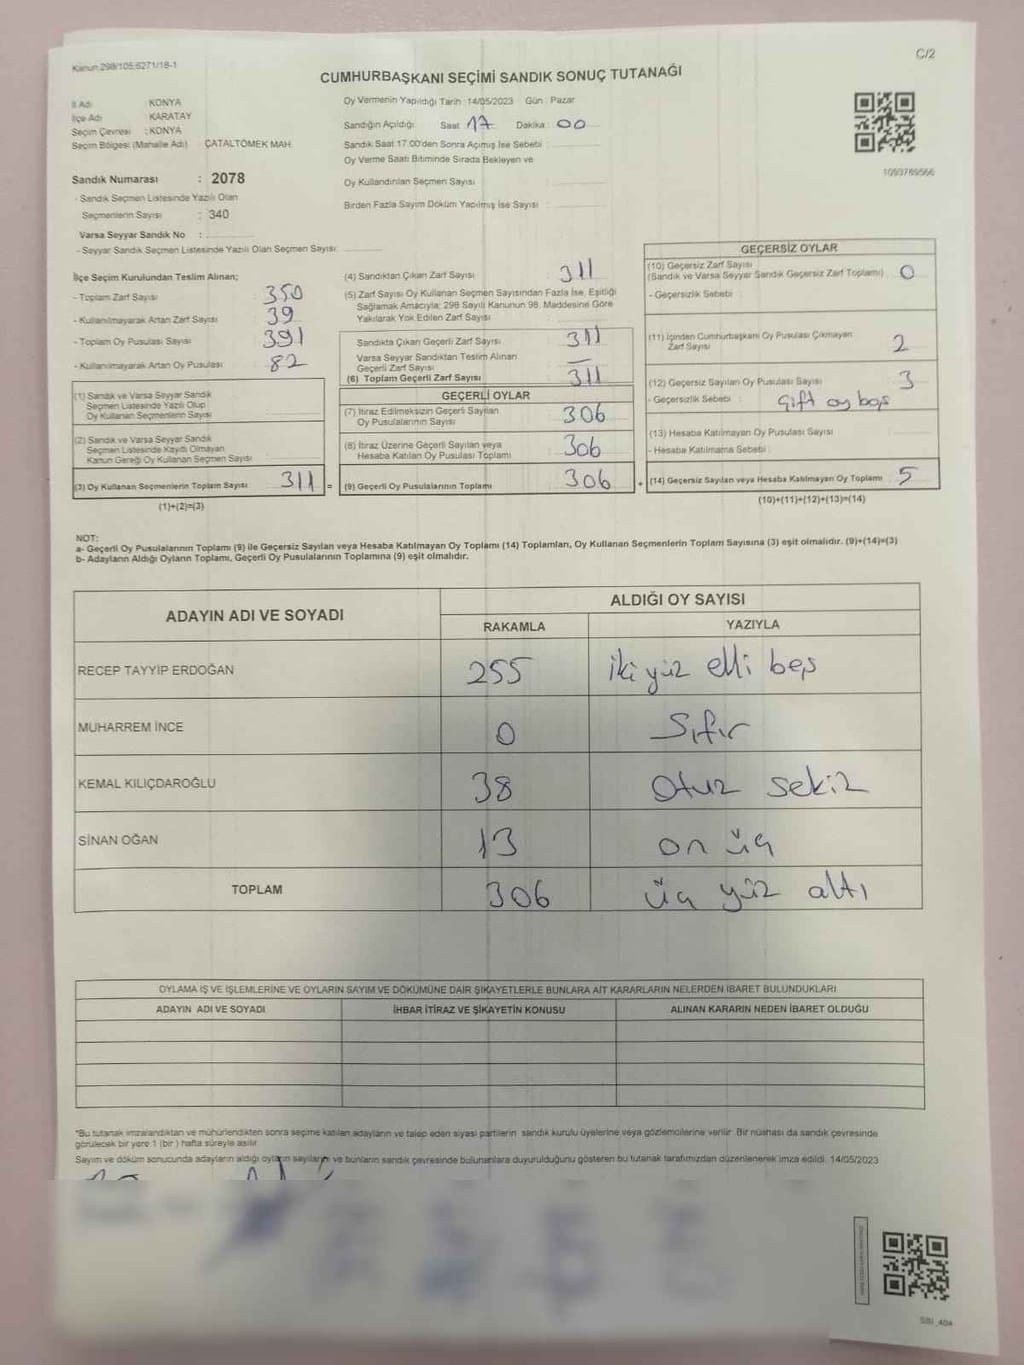 C/2
Kanun 298/105,6271/18-1
CUMHURBAŞKANI SEÇİMİ SANDIK SONUÇ TUTANAĞI
İl Adı : KONYA
İlçe Adı : KARATAY
Seçim Çevresi : KONYA
Seçim Bölgesi (Mahalle Adı) ÇATALTÖMEK MAH.
Sandık Numarası : 2078
- Sandık Seçmen Listesinde Yazılı Olan
Seçmenlerin Sayısı : 340
Varsa Seyyar Sandık No :
- Seyyar Sandık Seçmen Listesinde Yazılı Olan Seçmen Sayısı
Oy Vermenin Yapıldığı Tarih : 14/05/2023 Gün : Pazar
Sandığın Açıldığı Saat 17 Dakika : 00
Sandık Saat 17:00'den Sonra Açılmış İse Sebebi :
Oy Verme Saati Bitiminde Sırada Bekleyen ve
Oy Kullandırılan Seçmen Sayısı :
Birden Fazla Sayım Döküm Yapılmış İse Sayısı :
1093789566
İlçe Seçim Kurulundan Teslim Alınan;
- Toplam Zarf Sayısı : 350
- Kullanılmayarak Artan Zarf Sayısı : 39
- Toplam Oy Pusulası Sayısı : 391
- Kullanılmayarak Artan Oy Pusulası : 82
(1) Sandık ve Varsa Seyyar Sandık
Seçmen Listesinde Yazılı Olup
Oy Kullanan Seçmenlerin Sayısı
(2) Sandık ve Varsa Seyyar Sandık
Seçmen Listesinde Kaydı Olmayan
Kanun Gereği Oy Kullanan Seçmen Sayısı
(3) Oy Kullanan Seçmenlerin Toplam Sayısı 311 =
(1)+(2)=(3)
(4) Sandıktan Çıkan Zarf Sayısı : 311
(5) Zarf Sayısı Oy Kullanan Seçmen Sayısından Fazla İse, Eşitliği
Sağlamak Amacıyla; 298 Sayılı Kanunun 98. Maddesine Göre
Yakılarak Yok Edilen Zarf Sayısı :
Sandıkta Çıkan Geçerli Zarf Sayısı : 311
Varsa Seyyar Sandıktan Teslim Alınan
Geçerli Zarf Sayısı : —
(6) Toplam Geçerli Zarf Sayısı : 311
GEÇERLİ OYLAR
(7) İtiraz Edilmeksizin Geçerli Sayılan
Oy Pusulalarının Sayısı : 306
(8) İtiraz Üzerine Geçerli Sayılan veya
Hesaba Katılan Oy Pusulası Toplamı : 306
(9) Geçerli Oy Pusulalarının Toplamı : 306 +
GEÇERSİZ OYLAR
(10) Geçersiz Zarf Sayısı
(Sandık ve Varsa Seyyar Sandık Geçersiz Zarf Toplamı) : 0
- Geçersizlik Sebebi :
(11) İçinden Cumhurbaşkanı Oy Pusulası Çıkmayan
Zarf Sayısı : 2
(12) Geçersiz Sayılan Oy Pusulası Sayısı : 3
- Geçersizlik Sebebi : Çift oy boş
(13) Hesaba Katılmayan Oy Pusulası Sayısı :
- Hesaba Katılmama Sebebi :
(14) Geçersiz Sayılan veya Hesaba Katılmayan Oy Toplamı : 5
(10)+(11)+(12)+(13)=(14)
NOT:
a- Geçerli Oy Pusulalarının Toplamı (9) ile Geçersiz Sayılan veya Hesaba Katılmayan Oy Toplamı (14) Toplamları, Oy Kullanan Seçmenlerin Toplam Sayısına (3) eşit olmalıdır. (9)+(14)=(3)
b- Adayların Aldığı Oyların Toplamı, Geçerli Oy Pusulalarının Toplamına (9) eşit olmalıdır.
ADAYIN ADI VE SOYADI ALDIĞI OY SAYISI
RAKAMLA YAZIYLA
RECEP TAYYİP ERDOĞAN 255 iki yüz elli beş
MUHARREM İNCE 0 Sıfır
KEMAL KILIÇDAROĞLU 38 Otuz sekiz
SİNAN OĞAN 13 on üç
TOPLAM 306 üç yüz altı
OYLAMA İŞ VE İŞLEMLERİNE VE OYLARIN SAYIM VE DÖKÜMÜNE DAİR ŞİKAYETLERLE BUNLARA AİT KARARLARIN NELERDEN İBARET BULUNDUKLARI
ADAYIN ADI VE SOYADI İHBAR İTİRAZ VE ŞİKAYETİN KONUSU ALINAN KARARIN NEDEN İBARET OLDUĞU
*Bu tutanak imzalandıktan ve mühürlendikten sonra seçime katılan adayların ve talep eden siyasi partilerin sandık kurulu üyelerine veya gözlemcilerine verilir. Bir nüshası da sandık çevresinde
görülecek bir yere 1 (bir) hafta süreyle asılır.
Sayım ve döküm sonucunda adayların aldığı oyların sayılarını ve bunların sandık çevresinde bulunanlara duyurulduğunu gösteren bu tutanak tarafımızdan düzenlenerek imza edildi. 14/05/2023
SSI_404